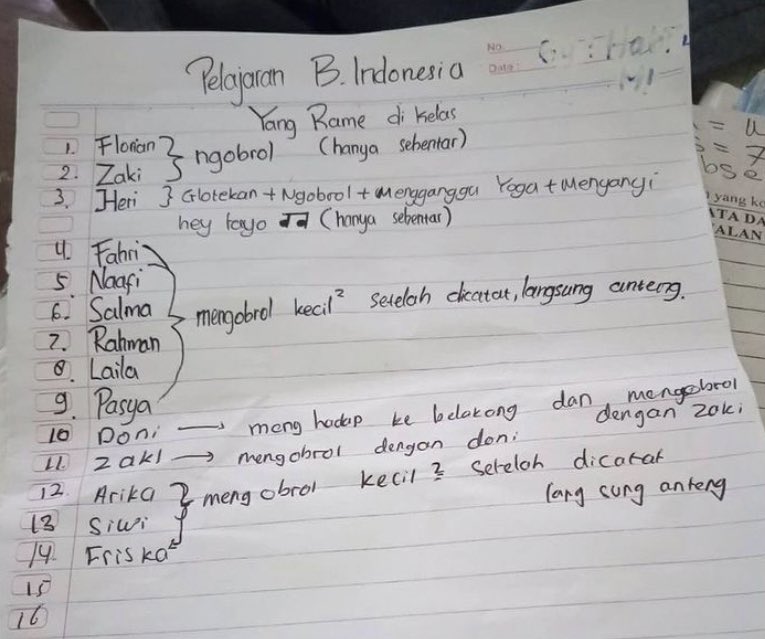 No.
Date:
Pelajaran B. Indonesia
Yang Rame di kelas
1. Florian } ngobrol (hanya sebentar)
2. Zaki
3. Heri } Glotekan + Ngobrol + Mengganggu Yoga + Menyanyi
hey tayo (hanya sebentar)
4. Fahri
5. Naafi
6. Salma
mengobrol kecil² setelah dicatat, langsung anteng.
7. Rahman
8. Laila
9. Pasya
10 Doni → menghadap ke belakang dan mengobrol
dengan zaki
11. zaki → mengobrol dengan doni
12. Arika } mengobrol kecil² setelah dicatat
lang sung anteng
13 Siwi
14. Friska
15
16
= u
= 7
bse
yang ke
TA DA
ALAN